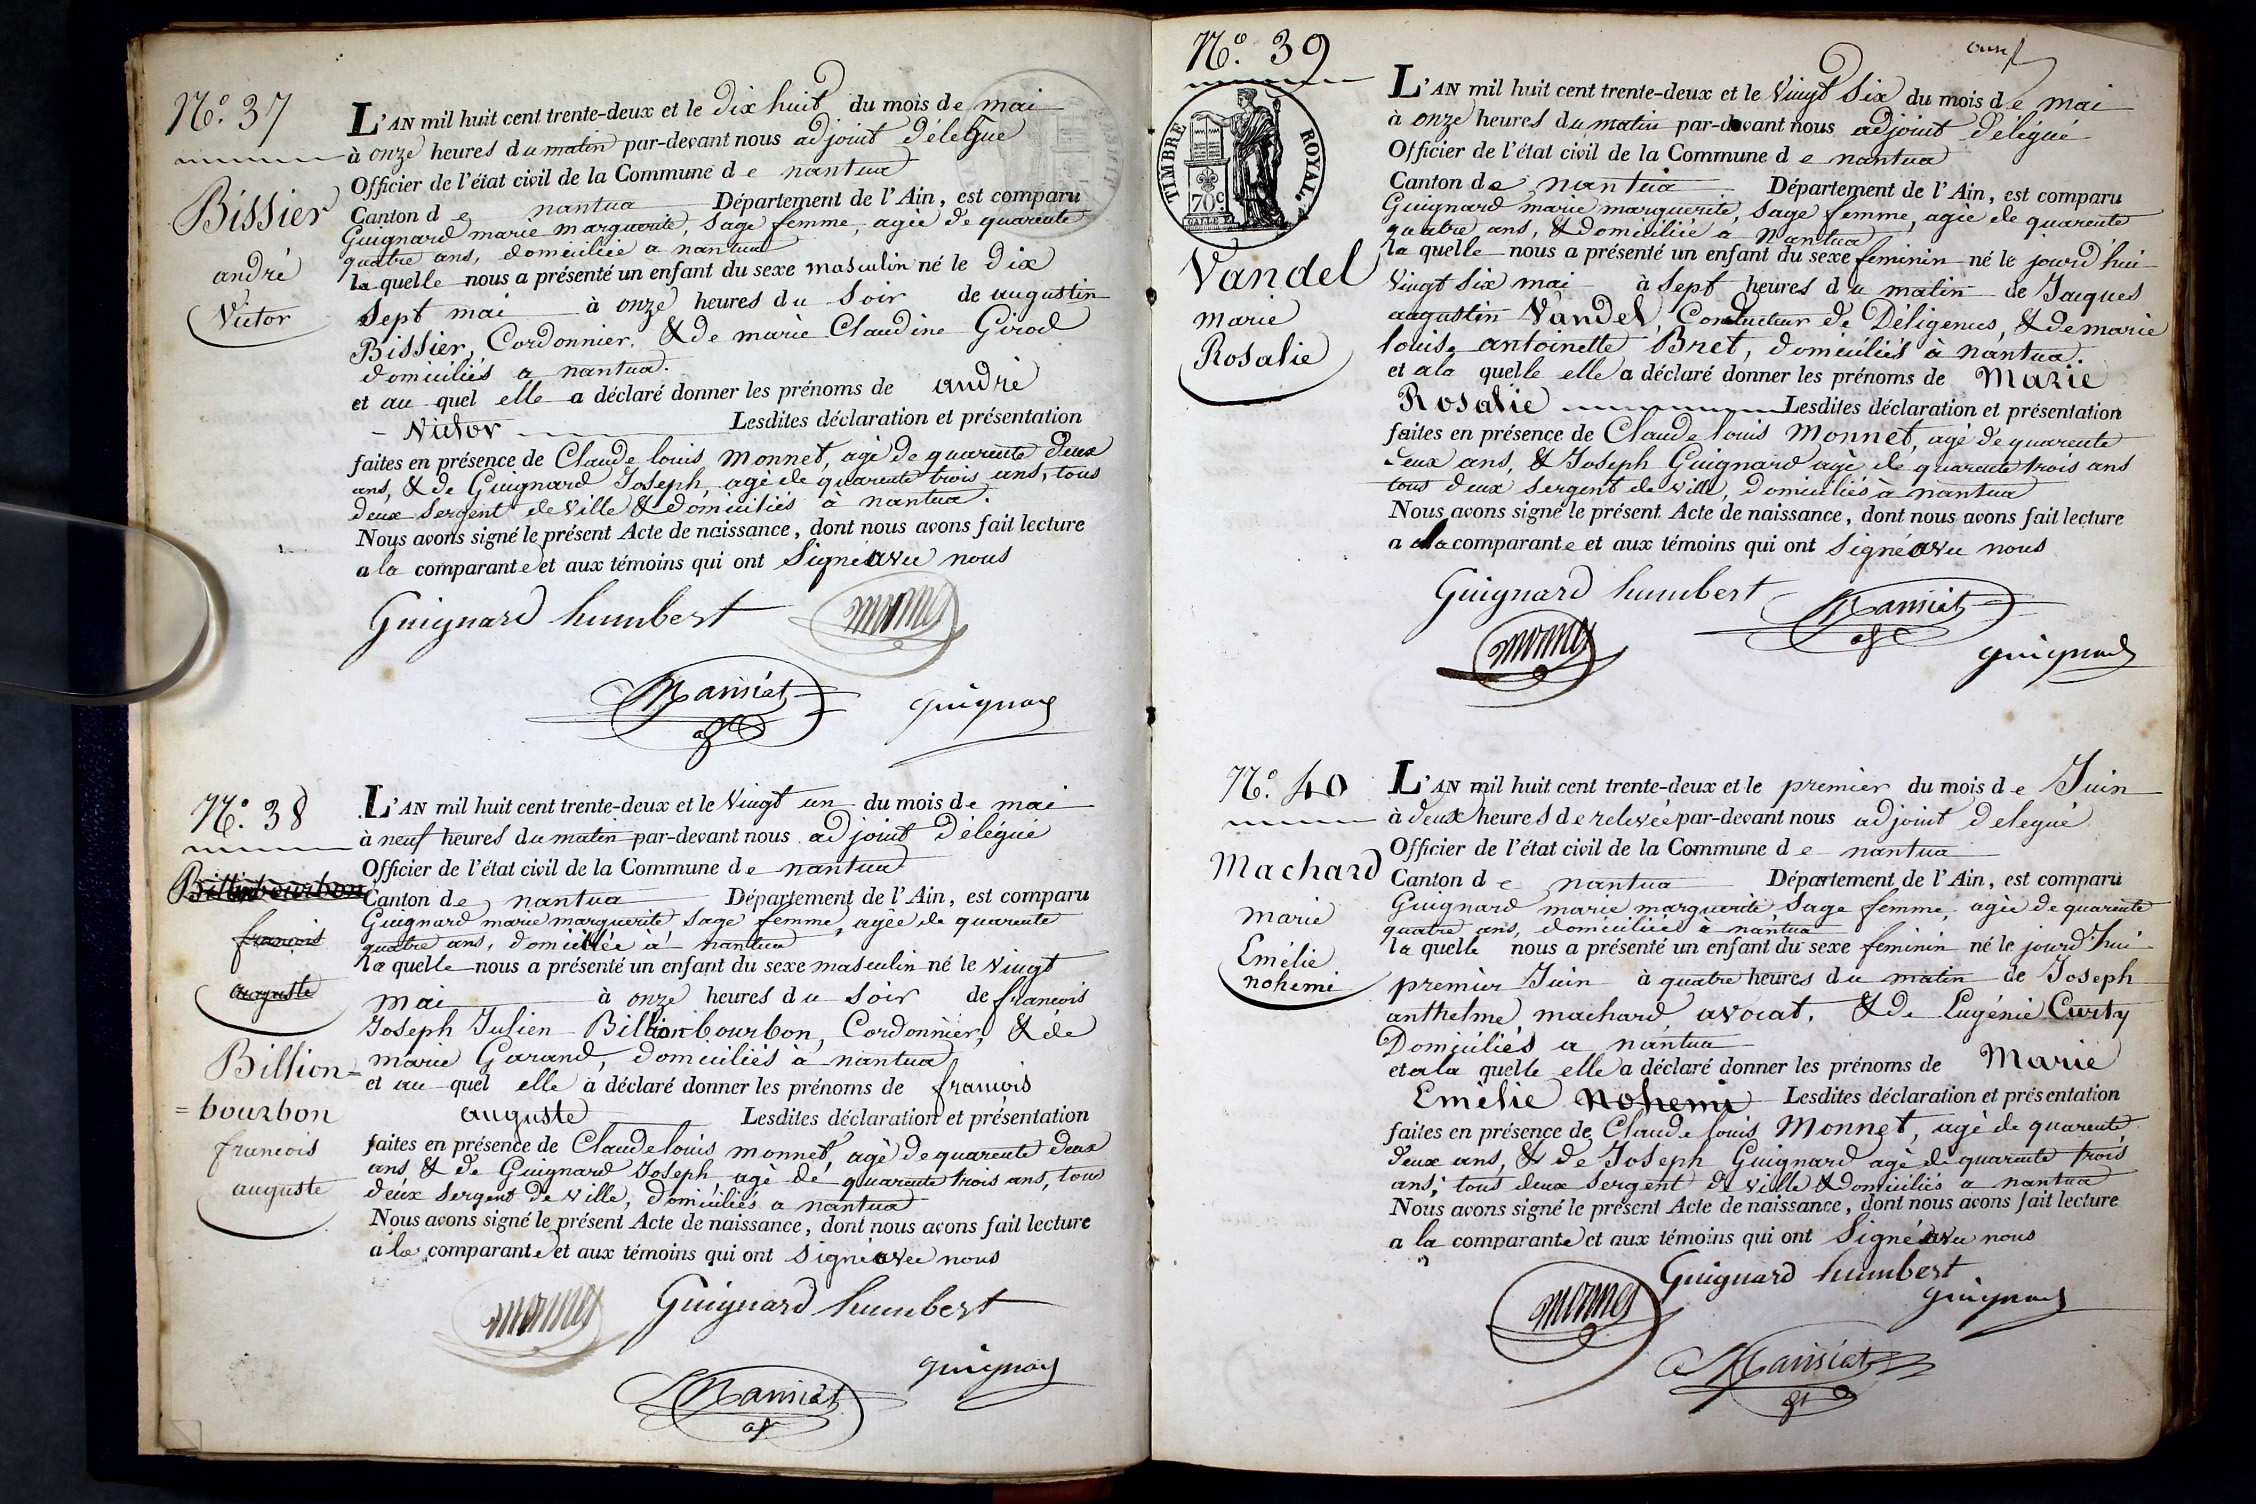 N.º 37
Bissier
andré
Victor
L'AN mil huit cent trente-deux et le dix huit du mois de mai
à onze heures du matin par-devant nous adjoint délégué
Officier de l'état civil de la Commune de nantua
Canton de nantua Département de l'Ain, est comparu
Guignard marie marguerite, Sage femme, agée de quarente
quatre ans, domiciliée a nantua
la quelle nous a présenté un enfant du sexe masculin né le dix
Sept mai à onze heures du Soir de augustin
Bissier, Cordonnier, & de marie Claudine Girod
domiciliés a nantua.
et au quel elle a déclaré donner les prénoms de andré
Victor Lesdites déclaration et présentation
faites en présence de Claude louis Monnet, agé de quarente deux
ans, & de Guignard Joseph, agé de quarente trois ans, tous
deux Sergent de Ville & domiciliés à nantua.
Nous avons signé le présent Acte de naissance, dont nous avons fait lecture
a la comparante et aux témoins qui ont Signé avec nous
Guignard humbert monnet
guignard
N.º 38
Billionbourbon
francois
auguste
Billion=
=bourbon
francois
auguste
L'AN mil huit cent trente-deux et le Vingt un du mois de mai
à neuf heures du matin par-devant nous adjoint délégué
Officier de l'état civil de la Commune de nantua
Canton de nantua Département de l'Ain, est comparu
Guignard marie marguerite, Sage femme, agée de quarente
quatre ans, domiciliée à nantua
la quelle nous a présenté un enfant du sexe masculin né le Vingt
mai à onze heures du Soir de francois
Joseph Julien Billion bourbon, Cordonnier, & de
marie Garand, domiciliés à nantua
et au quel elle a déclaré donner les prénoms de francois
auguste Lesdites déclaration et présentation
faites en présence de Claude louis monnet, agé de quarente deux
ans & de Guignard Joseph, agé de quarente trois ans, tous
deux Sergent de Ville, domiciliés a nantua
Nous avons signé le présent Acte de naissance, dont nous avons fait lecture
a la comparante et aux témoins qui ont Signé avec nous
monnet Guignard humbert
guignard
N.º 39
TIMBRE ROYAL.
70c.
Vandel
marie
Rosalie
L'AN mil huit cent trente-deux et le Vingt Six du mois de mai
à onze heures du matin par-devant nous adjoint délégué
Officier de l'état civil de la Commune de nantua
Canton de nantua Département de l'Ain, est comparu
Guignard marie marguerite, Sage femme, agée de quarente
quatre ans, & domiciliée a Nantua
la quelle nous a présenté un enfant du sexe feminin né le jourd'hui
Vingt Six mai à Sept heures du matin de Jacques
augustin Vandel, Conducteur de Déligences, & de marie
louise antoinette Bret, domiciliés à nantua.
et a la quelle elle a déclaré donner les prénoms de Marie
Rosalie Lesdites déclaration et présentation
faites en présence de Claude louis Monnet, agé de quarente
deux ans, & Joseph Guignard agé de quarente trois ans
tous deux Sergent de Ville, domiciliés à nantua
Nous avons signé le présent Acte de naissance, dont nous avons fait lecture
a la comparante et aux témoins qui ont Signé avec nous
Guignard humbert
monnet guignard
N.º 40
Machard
marie
Emélie
nohemi
L'AN mil huit cent trente-deux et le premier du mois de Juin
à deux heures de relevée par-devant nous adjoint delegué
Officier de l'état civil de la Commune de nantua
Canton de nantua Département de l'Ain, est comparu
Guignard marie marguerite, Sage femme, agée de quarente
quatre ans, domiciliée a nantua
la quelle nous a présenté un enfant du sexe feminin né le jourd'hui
premier Juin à quatre heures du matin de Joseph
anthelme machard, avocat, & de Eugénie Curty
Domiciliés a nantua
et a la quelle elle a déclaré donner les prénoms de Marie
Emélie Nohemi Lesdites déclaration et présentation
faites en présence de Claude louis Monnet, agé de quarente
deux ans, & de Joseph Guignard agé de quarente trois
ans, tous deux Sergent de Ville & domiciliés a nantua
Nous avons signé le présent Acte de naissance, dont nous avons fait lecture
a la comparante et aux témoins qui ont Signé avec nous
Guignard humbert
monnet guignard